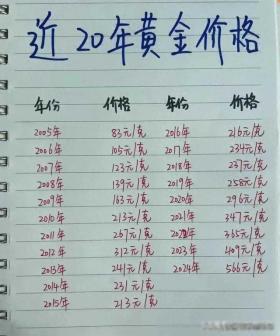 近20年黄金价格
年份 价格 年份 价格
2005年 83元/克 2016年 216元/克
2006年 105元/克 2017年 234元/克
2007年 123元/克 2018年 237元/克
2008年 139元/克 2019年 258元/克
2009年 163元/克 2020年 296元/克
2010年 213元/克 2021年 347元/克
2011年 267元/克 2022年 365元/克
2012年 312元/克 2023年 409元/克
2013年 241元/克 2024年 566元/克
2014年 231元/克
2015年 213元/克